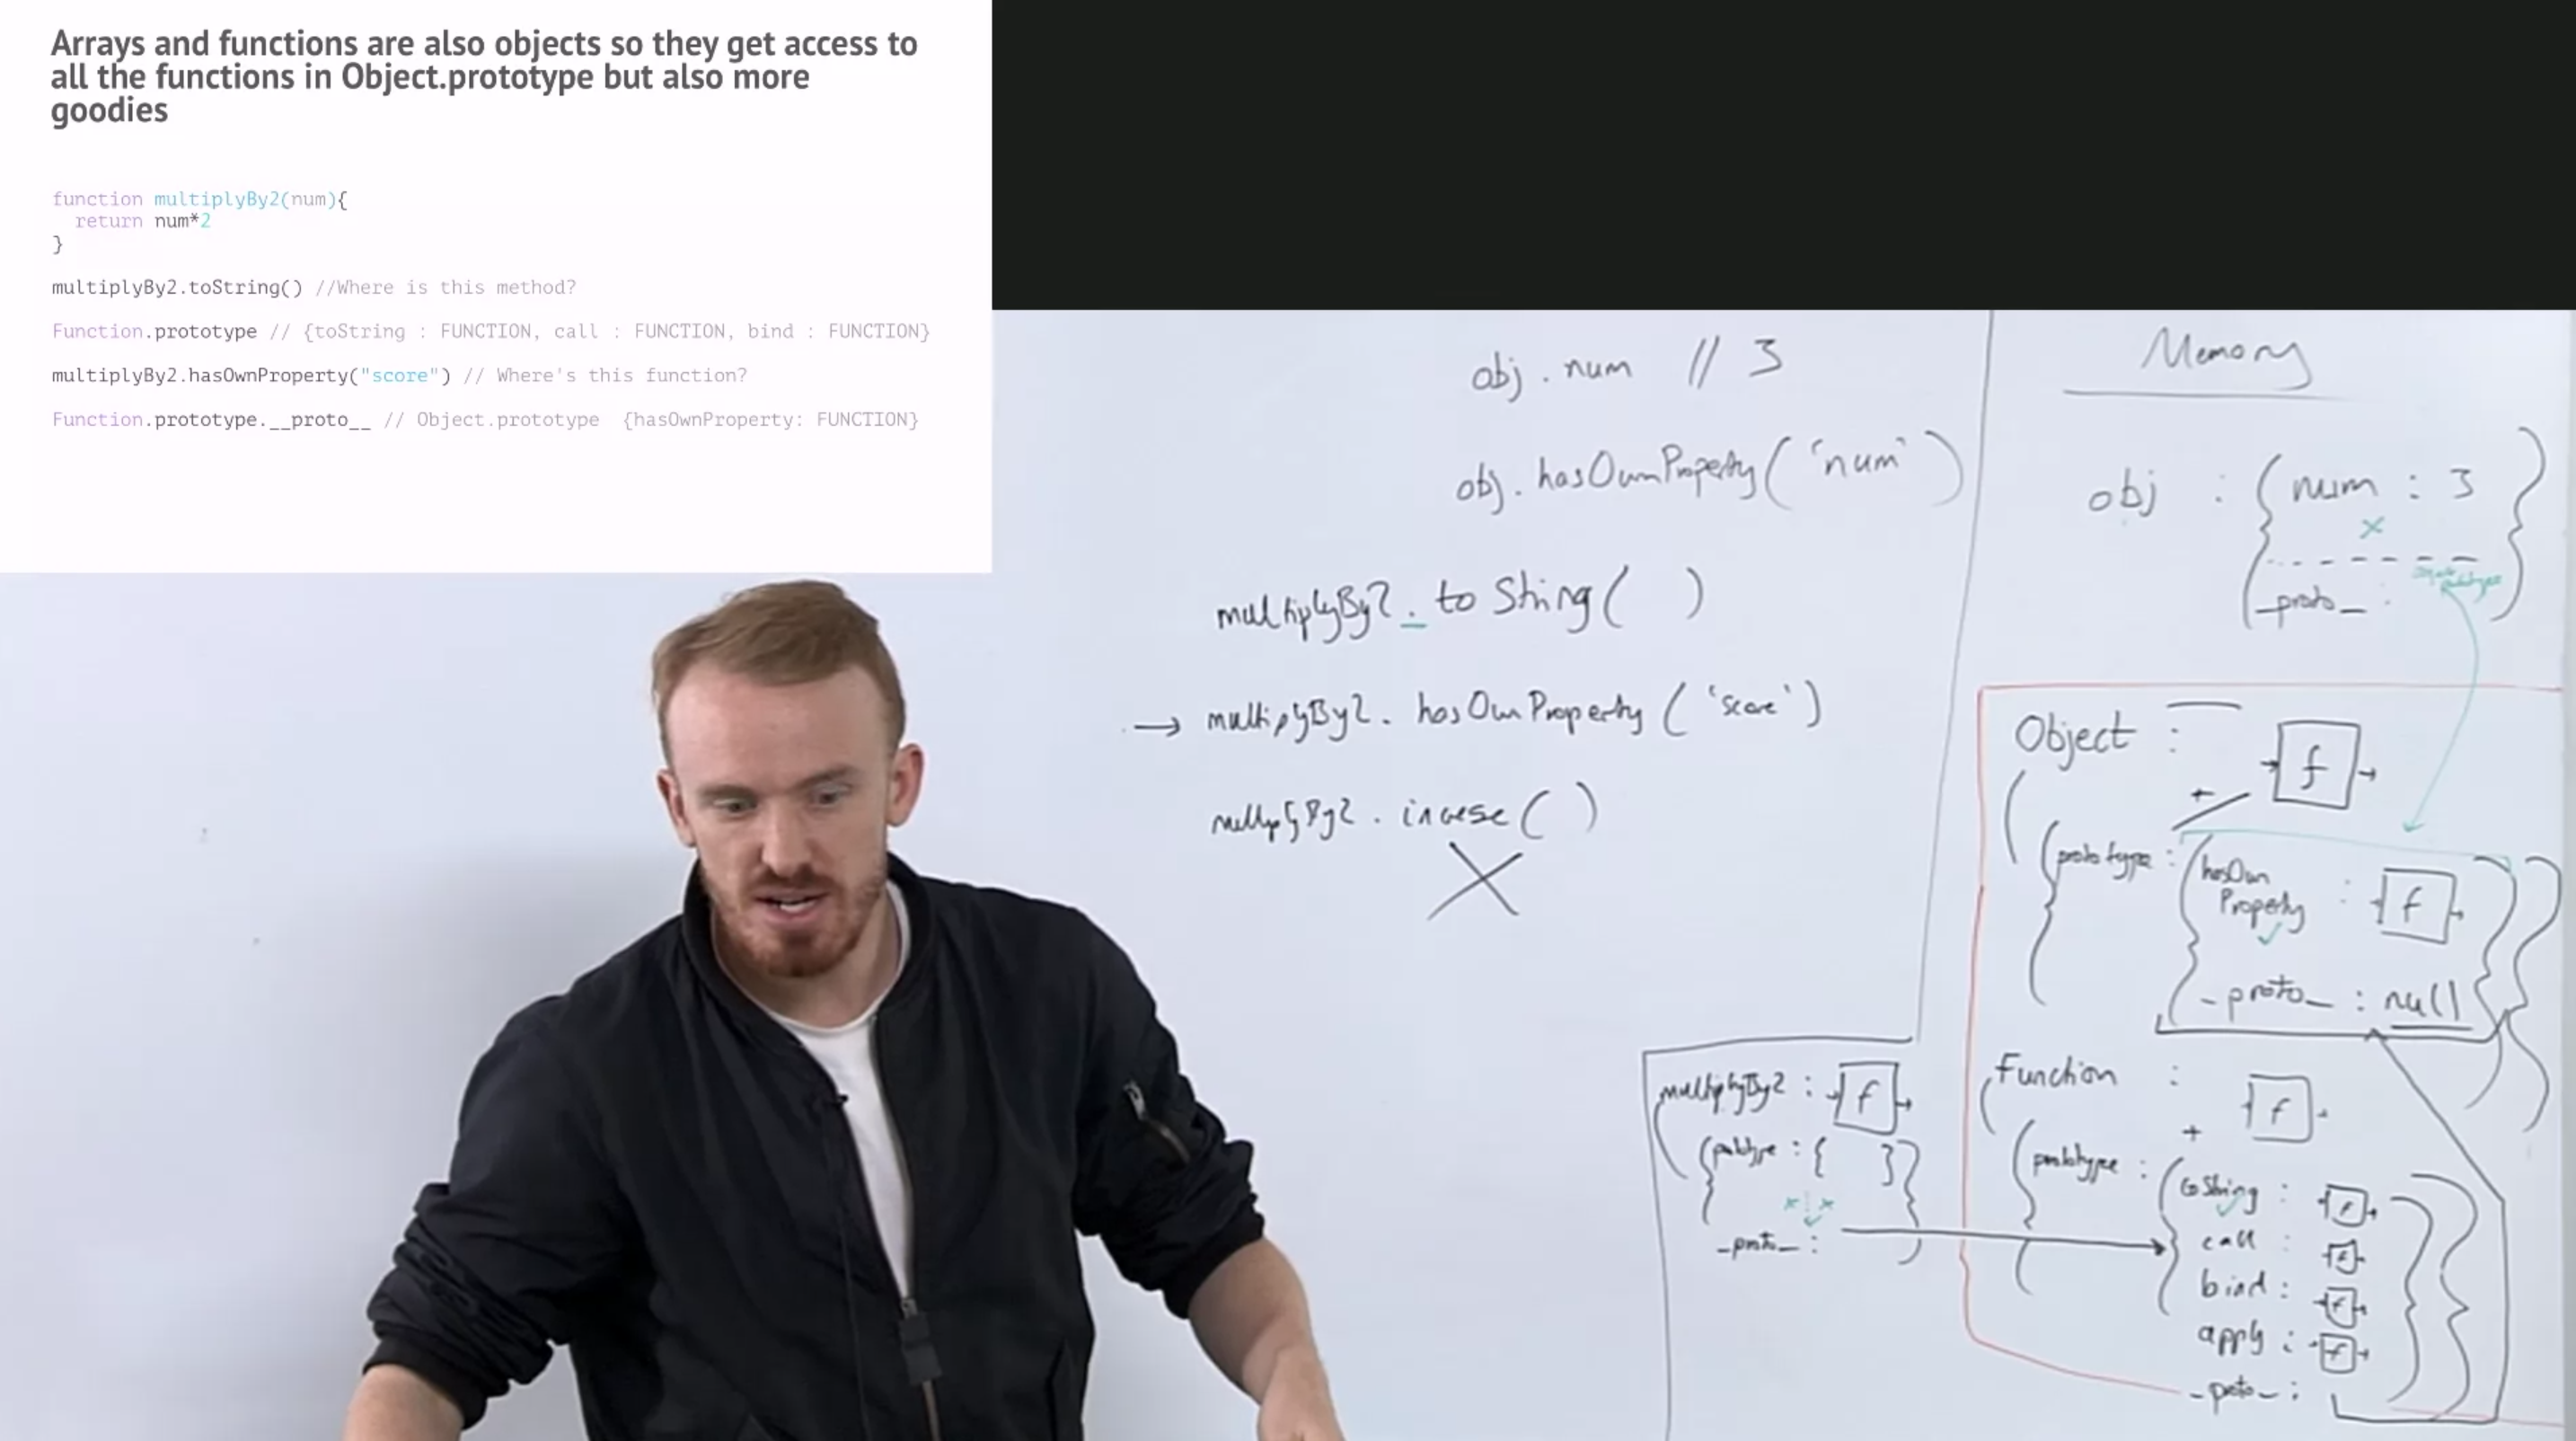 Arrays and functions are also objects so they get access to
all the functions in Object.prototype but also more
goodies
function multiplyBy2(num){
return num*2
}
multiplyBy2.toString() //Where is this method?
Function.prototype // {toString : FUNCTION, call : FUNCTION, bind : FUNCTION}
multiplyBy2.hasOwnProperty("score") // Where's this function?
Function.prototype.__proto__ // Object.prototype {hasOwnProperty: FUNCTION}
obj . num // 3
obj . hasOwnProperty ( 'num' )
multiplyBy2 . toString ( )
→ multiplyBy2 . hasOwnProperty ( 'score' )
multiplyBy2 . ( )
Memory
obj : { num : 3
_proto_ : }
Object : f
+
{ prototype : { hasOwn
Property : f
_proto_ : null } }
multiplyBy2 : f
{ prototype : { }
_proto_ : }
Function : f
+
{ prototype : { toString : f
call : f
bind : f
apply : f
_proto_ : } }